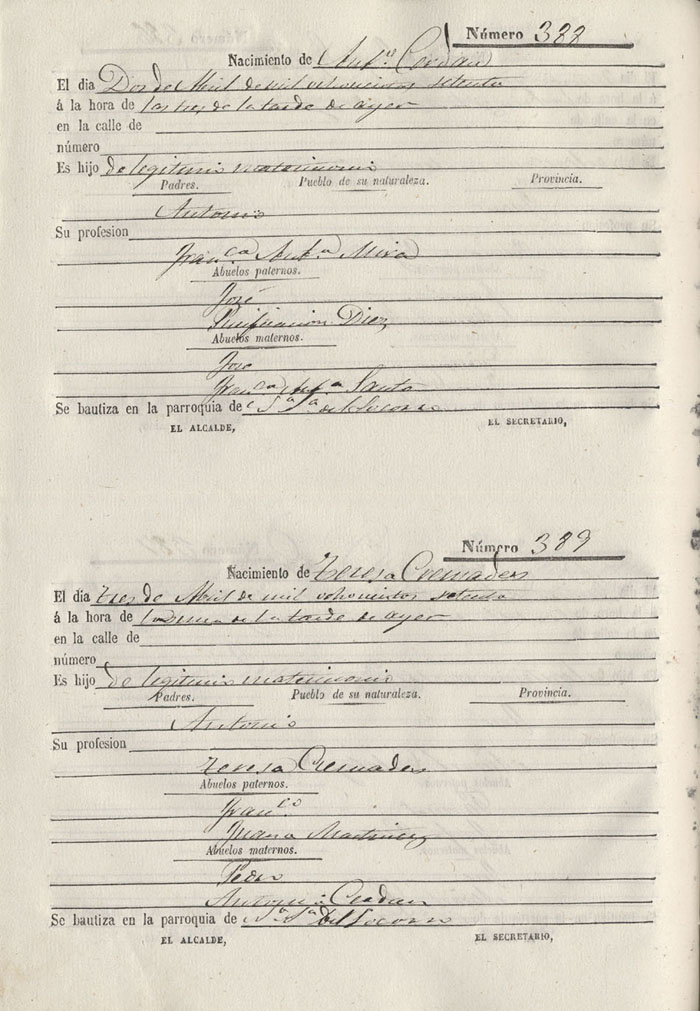 Número 388
Nacimiento de Antº Cerdan
El dia Dos de Abril de mil ochocientos setenta
á la hora de las tres de la tarde de ayer
en la calle de
número
Es hijo de legitimo matrimonio
Padres. Pueblo de su naturaleza. Provincia.
Antonio
Su profesion
Franca Anta Mira
Abuelos paternos.
José
Purificacion Diez
Abuelos maternos.
José
Franca Anta Santo
Se bautiza en la parroquia de del Socorro
EL ALCALDE, EL SECRETARIO,
Número 389
Nacimiento de Teresa Cremades
El dia tres de Abril de mil ochocientos setenta
á la hora de la una de la tarde de ayer
en la calle de
número
Es hijo de legitimo matrimonio
Padres. Pueblo de su naturaleza. Provincia.
Antonio
Su profesion
Teresa Cremades
Abuelos paternos.
Franco
Juana Martinez
Abuelos maternos.
Pedro
Antonia Cerdan
Se bautiza en la parroquia de del Socorro
EL ALCALDE, EL SECRETARIO,